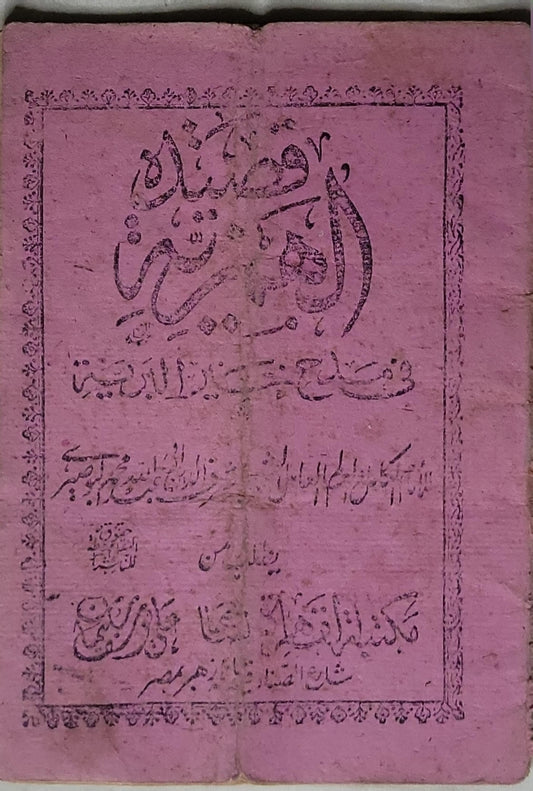 قصيدة
الهمزية
في مدح خير البرية
للإمام الكامل العالم العامل شرف الدين أبي عبد الله محمد البوصيري
يطلب من
مكتبة القاهرة
شارع الصنادقية بالأزهر بمصر